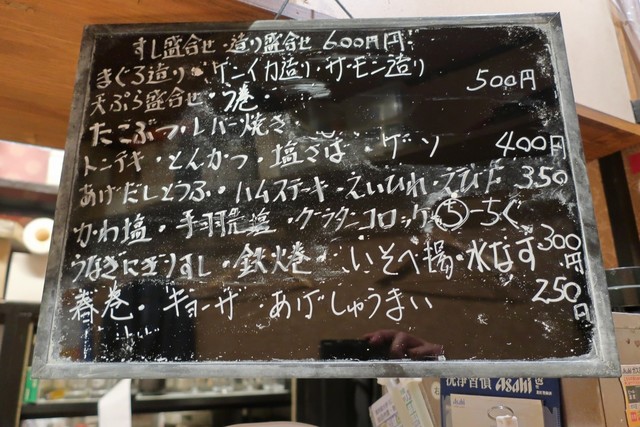 すし盛合せ・造り盛合せ 600円
まぐろ造り・ケンイカ造り・サーモン造り
天ぷら盛合せ・う巻 500円
たこぶつ・レバー焼き
トンテキ・とんかつ・塩さば・ゲソ 400円
あげだしとうふ・ハムステーキ・えいひれ・えび天 350
かわ塩・手羽先塩・グラタンコロッケ・ちーちく
うなぎにぎりすし・鉄火巻・いそべ揚・水なす 300円
春巻・ギョーザ・あげしゅうまい 250円
洗浄習慣 Asahi